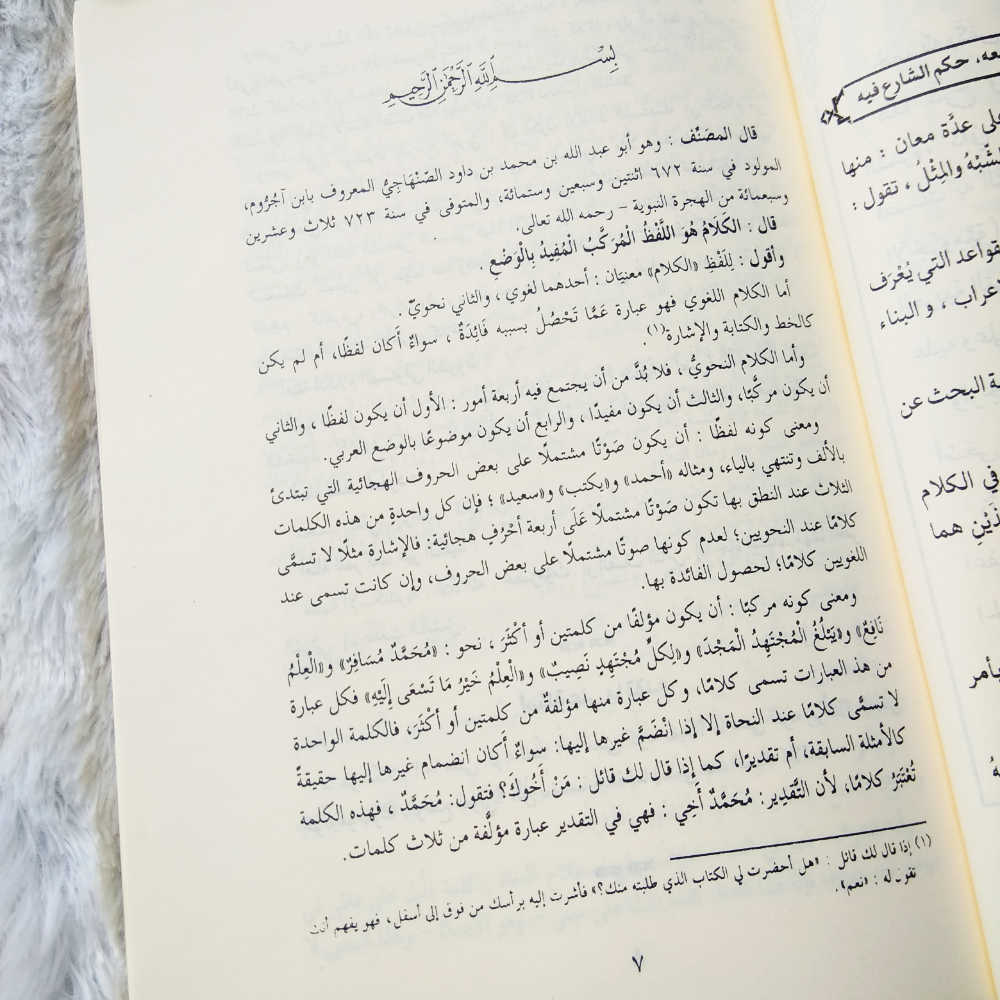 بِسْمِ ٱللَّهِ ٱلرَّحْمَٰنِ ٱلرَّحِيمِ
قال المصَنِّف : وهو أبو عبد الله بن محمد بن داود الصِّنْهَاجِيُّ المعروف بابن آجُرُّوم،
المولود في سنة ٦٧٢ اثنتين وسبعين وستمائة، والمتوفى في سنة ٧٢٣ ثلاث وعشرين
وسبعمائة من الهجرة النبوية – رحمه الله تعالى.
قال : الكَلَامُ هُوَ اللَّفْظُ الْمُرَكَّبُ الْمُفِيدُ بِالْوَضْعِ .
وأقول : لِلَفْظِ «الكلام» معنيَان : أحدهما لغوي ، والثاني نحويّ .
أما الكلام اللغوي فهو عبارة عَمَّا تَحْصُلُ بسببه فَائِدَةٌ ، سواءٌ أَكان لفظًا، أم لم يكن
كالخط والكتابة والإشارة(١).
وأما الكلام النحويُّ ، فلا بُدَّ من أن يجتمع فيه أربعة أمور : الأول أن يكون لفظًا ، والثاني
أن يكون مركَّبًا، والثالث أن يكون مفيدًا ، والرابع أن يكون موضوعًا بالوضع العربي.
ومعنى كونه لفظًا : أن يكون صَوْتًا مشتملًا على بعض الحروف الهجائية التي تبتدئ
بالألف وتنتهي بالياء، ومثاله «أحمد» و«يكتب» و«سعيد» ؛ فإن كل واحدةٍ من هذه الكلمات
الثلاث عند النطق بها تكون صَوْتًا مشتملًا عَلَى أربعة أحْرُفٍ هجائية: فالإشارة مثلًا لا تسمَّى
كلامًا عند النحويين؛ لعدم كونها صوتًا مشتملًا على بعض الحروف، وإن كانت تسمى عند
اللغويين كلامًا؛ لحصول الفائدة بها.
ومعنى كونه مركبًا : أن يكون مؤلفًا من كلمتين أو أكْثَرَ ، نحو : «مُحَمَّدٌ مُسَافِرٌ» و«الْعِلْمُ
نَافِعٌ» و«يَبْلُغُ الْمُجْتَهِدُ الْمَجْدَ» و«لِكلِّ مُجْتَهِدٍ نَصِيبٌ» و«الْعِلْمُ خَيْرُ مَا تَسْعَى إِلَيْهِ» فكل عبارة
من هذ العبارات تسمى كلامًا، وكل عبارة منها مؤلفةٌ من كلمتين أو أكْثَرَ، فالكلمة الواحدة
لا تسمَّى كلامًا عند النحاة إلا إذا انْضَمَّ غيرها إليها: سواءٌ أَكان انضمام غيرها إليها حقيقةً
كالأمثلة السابقة، أم تقديرًا، كما إذا قال لك قائل : مَنْ أَخُوكَ؟ فتقول: مُحَمَّدٌ ، فهذه الكلمة
تُعْتَبَرُ كلامًا، لأن التَّقدِير: مُحَمَّدٌ أَخِي : فهي في التقدير عبارة مؤلَّفة من ثلاث كلمات.
(١) إذا قال لك قائل : «هل أحضرت لي الكتاب الذي طلبته منك؟» فأشرت إليه برأسك من فوق إلى أسفل، فهو يفهم أنت
تقول له : «نعم».
٧
حكم الشارع فيه
على عدَّة معان : منها
الشِّبْهُ والمِثْلُ ، تقول :
القواعد التي يُعْرَف
و البناء
البحث عن
في الكلام
هما